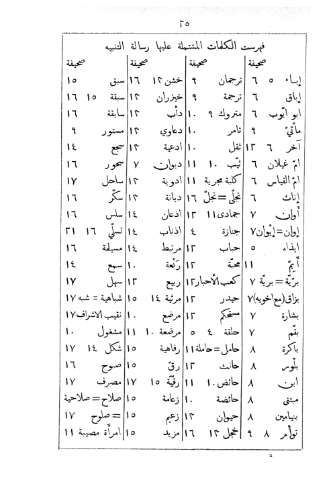 ٢٥
فهرست الكلمات المشتملة عليها رسالة التنبيه
صحيفة صحيفة صحيفة صحيفة
إساءه ٥ ٦ ترجمان ٩ خشن ١٢ ١٦ سبق ١٥
إباق ٦ ترجمة ٩ خيزران ١٢ سبقة ١٥ ١٦
ابو ايوب ٦ متروك ٩ ١٠ دأب ١٢ سابقة ١٦
مأتي ٩ تامر ١٠ دعاوي ١٢ مستور ٩
آخر ٦ ١٢ ثقل ١٠ ادعية ١٢ سجع ١٤
ام غيلان ٦ ثيب ١٠ ١١ ديوان ٧ سحور ١٦
ام القياس ٦ كلبة مجرية ١١ ادوية ١٢ ساحل ١٧
إناث ٦ تجلي = تجل ١٦ ديانة ١٢ سكر ١٦
أوان ٧ جمادى ١١ ١٢ اذعان ١٤ سلس ١٦
إوان = إيوان ٧ جنازة ٤ اذناب ١٤ تسلي ١٦ ٢١
ايذاء ٥ حباب ١٢ مرتبط ١٤ مسيلمة ١٦
أيم ١١ محبة ١٢ رتعة ١٠ سمع ١٤
برية = برية ٧ كعب الأحبار ١٢ ربيع ١٢ سهل ١٧
بزاق (مع اخويه) ٧ حيدر ١٢ مرثية ١٤ ١٥ شباهية = شبه ١٧
بشارة ٧ مستحكم ١٢ مرضع ١٠ نقيب الاشراف ١٧
بقم ٧ حلقة ٤ ٥ مرضعة ١٠ ١١ مشغول ١٠
باكرة ٨ حامل = حاملة ١١ رفاهية ١٥ شكل ١٤ ١٧
بلور ٨ حانث ١٢ رق ١٥ صبوح ١٦
ابن ٨ حائض ١٠ ١١ رقية ١٥ ١٧ مصرف ١٧
مبتنى ٨ حائضة ١٠ زعامة ١٥ صلاح = صلاحية
بنيامين ٨ حيوان ١٢ زعيم ١٥ = صلوح ١٧
توأم ٨ ٩ خجل ١٢ ١٦ مزيد ١٥ امرأة مصيبة ١١